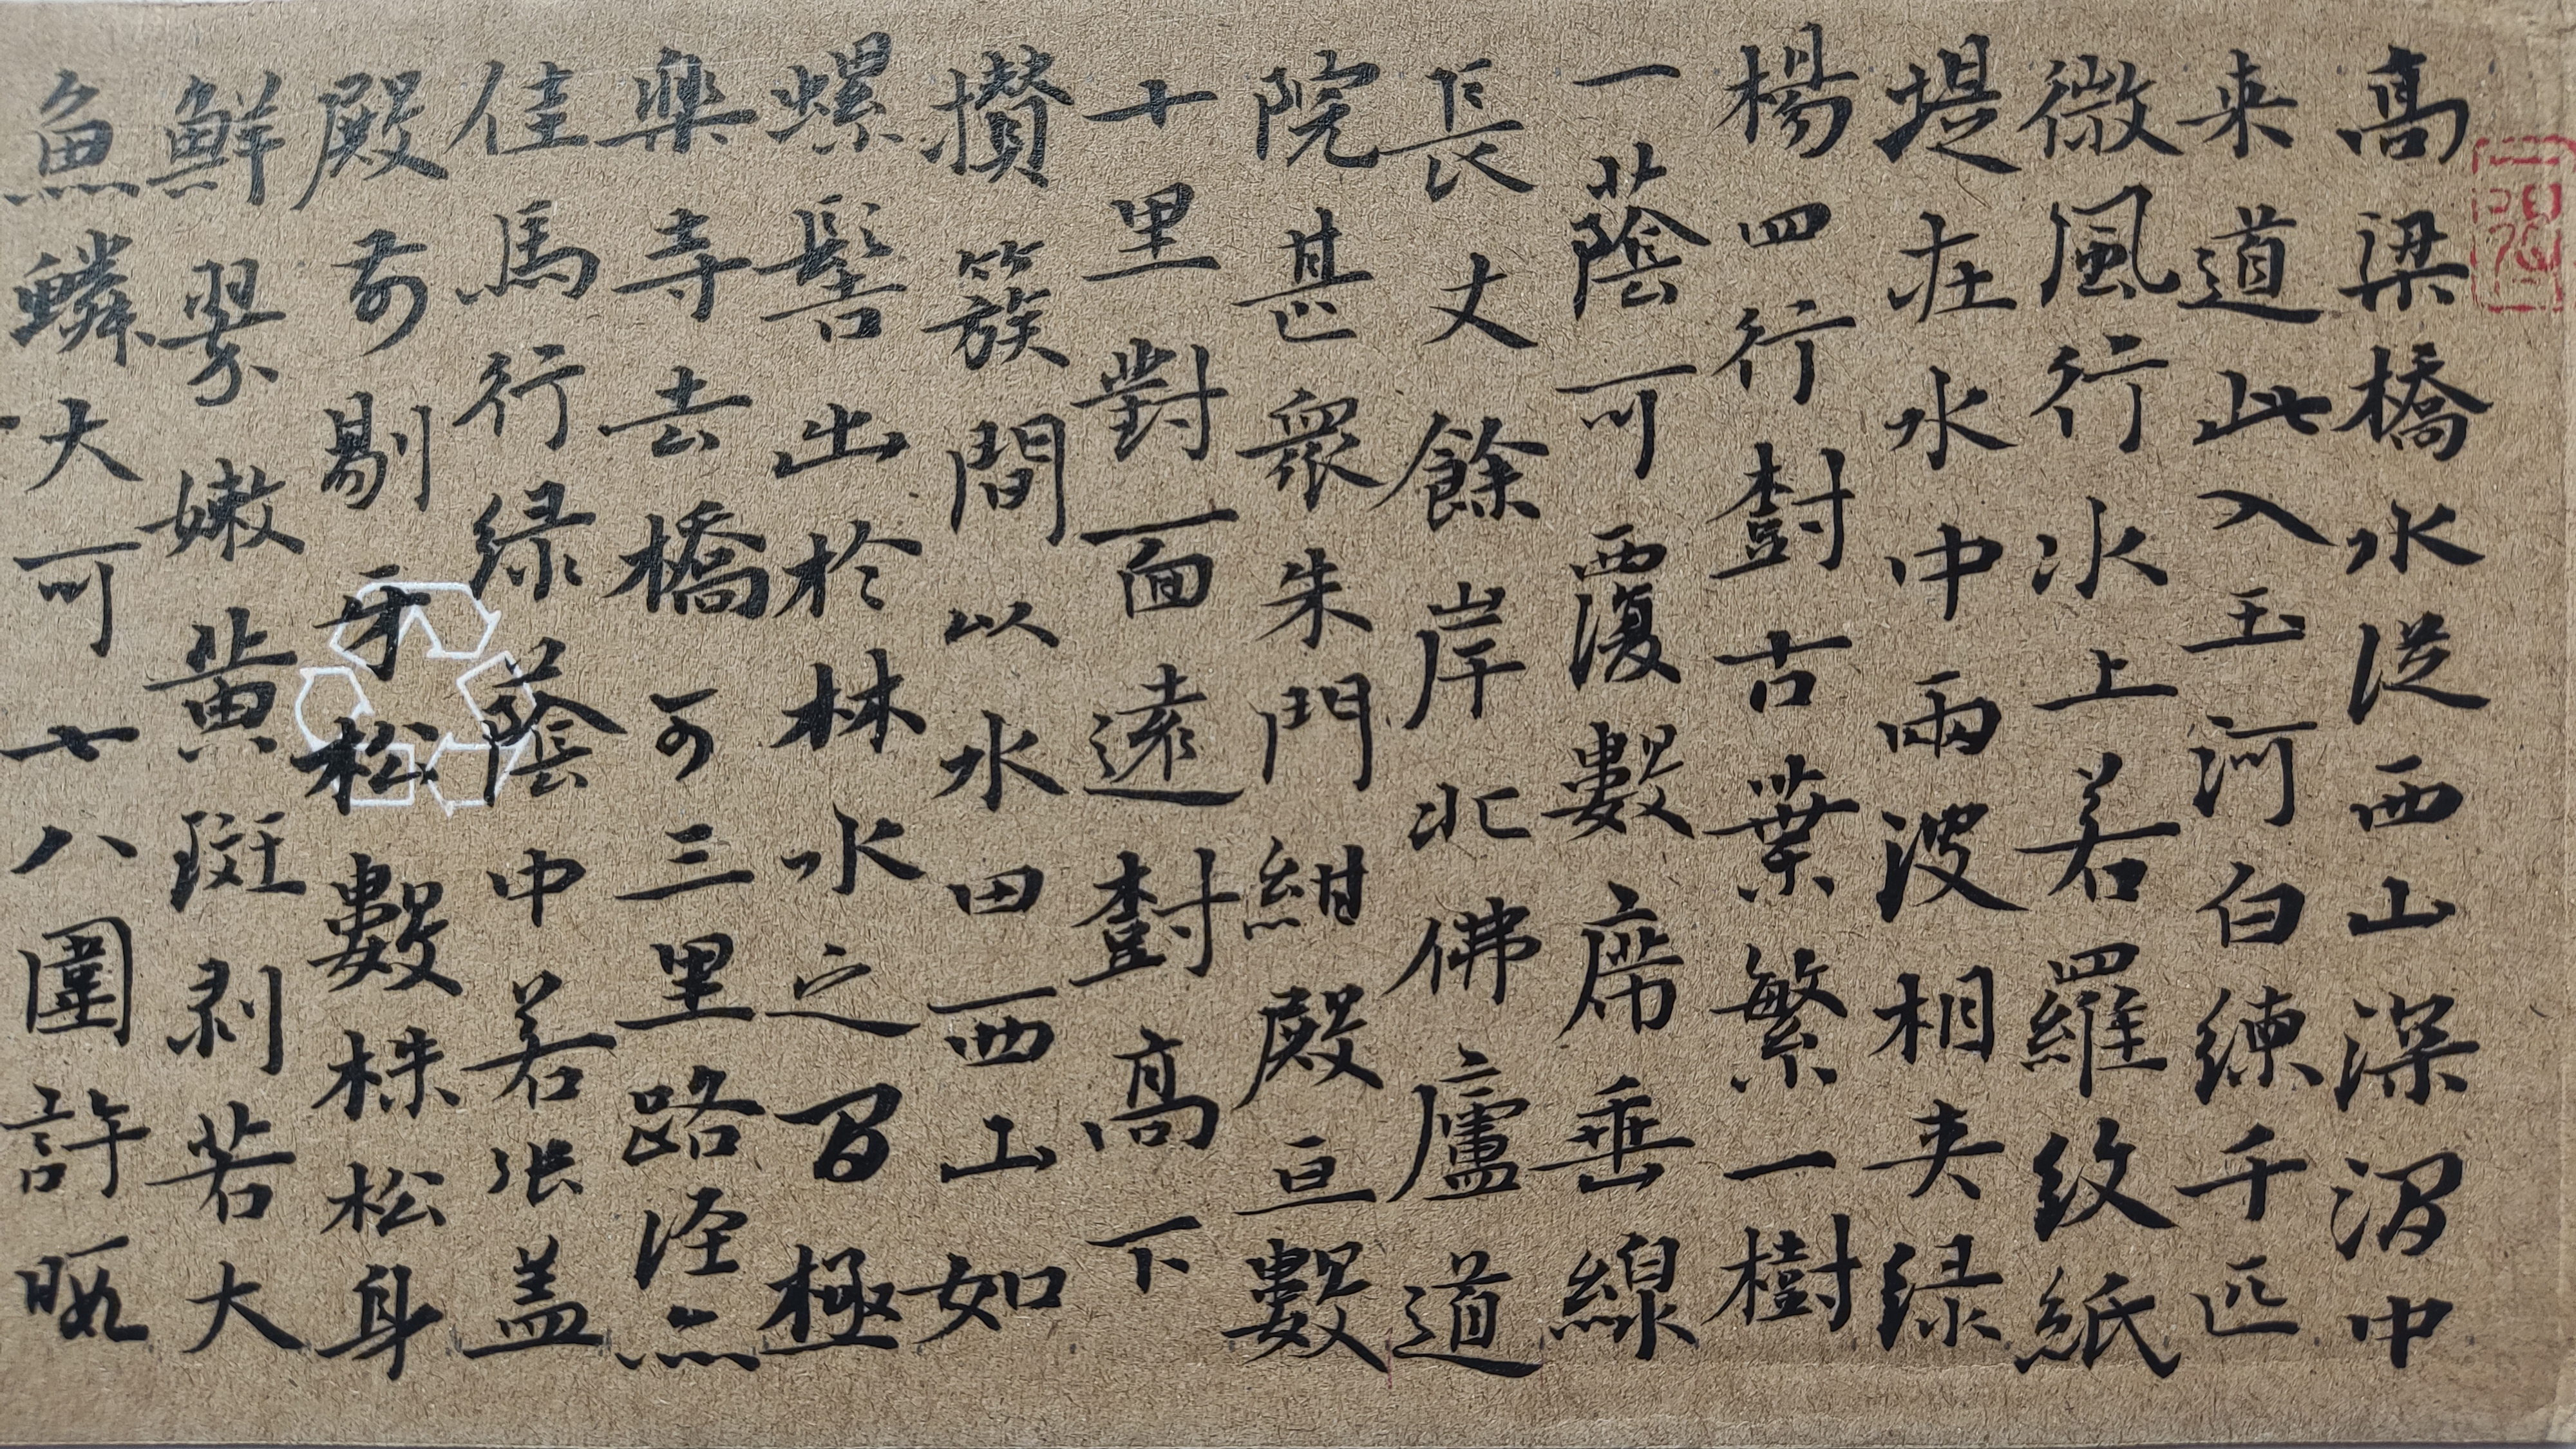 高梁橋水従西山深澗中
来道此入玉河白練千匹
微風行水上若羅紋紙
堤在水中兩波相夾緑
楊四行樹古葉繁一樹
一蔭可覆數席垂線
長丈餘岸北佛廬道
院甚衆朱門紺殿亘數
十里對面遠樹高下
攢簇間以水田西山如
螺髻出於林水之間極
樂寺去橋可三里路徑亦
佳馬行緑蔭中若張盖
殿前剔牙松數株松身
鮮翠嫩黄斑剥若大
魚鱗大可七八圍許暇